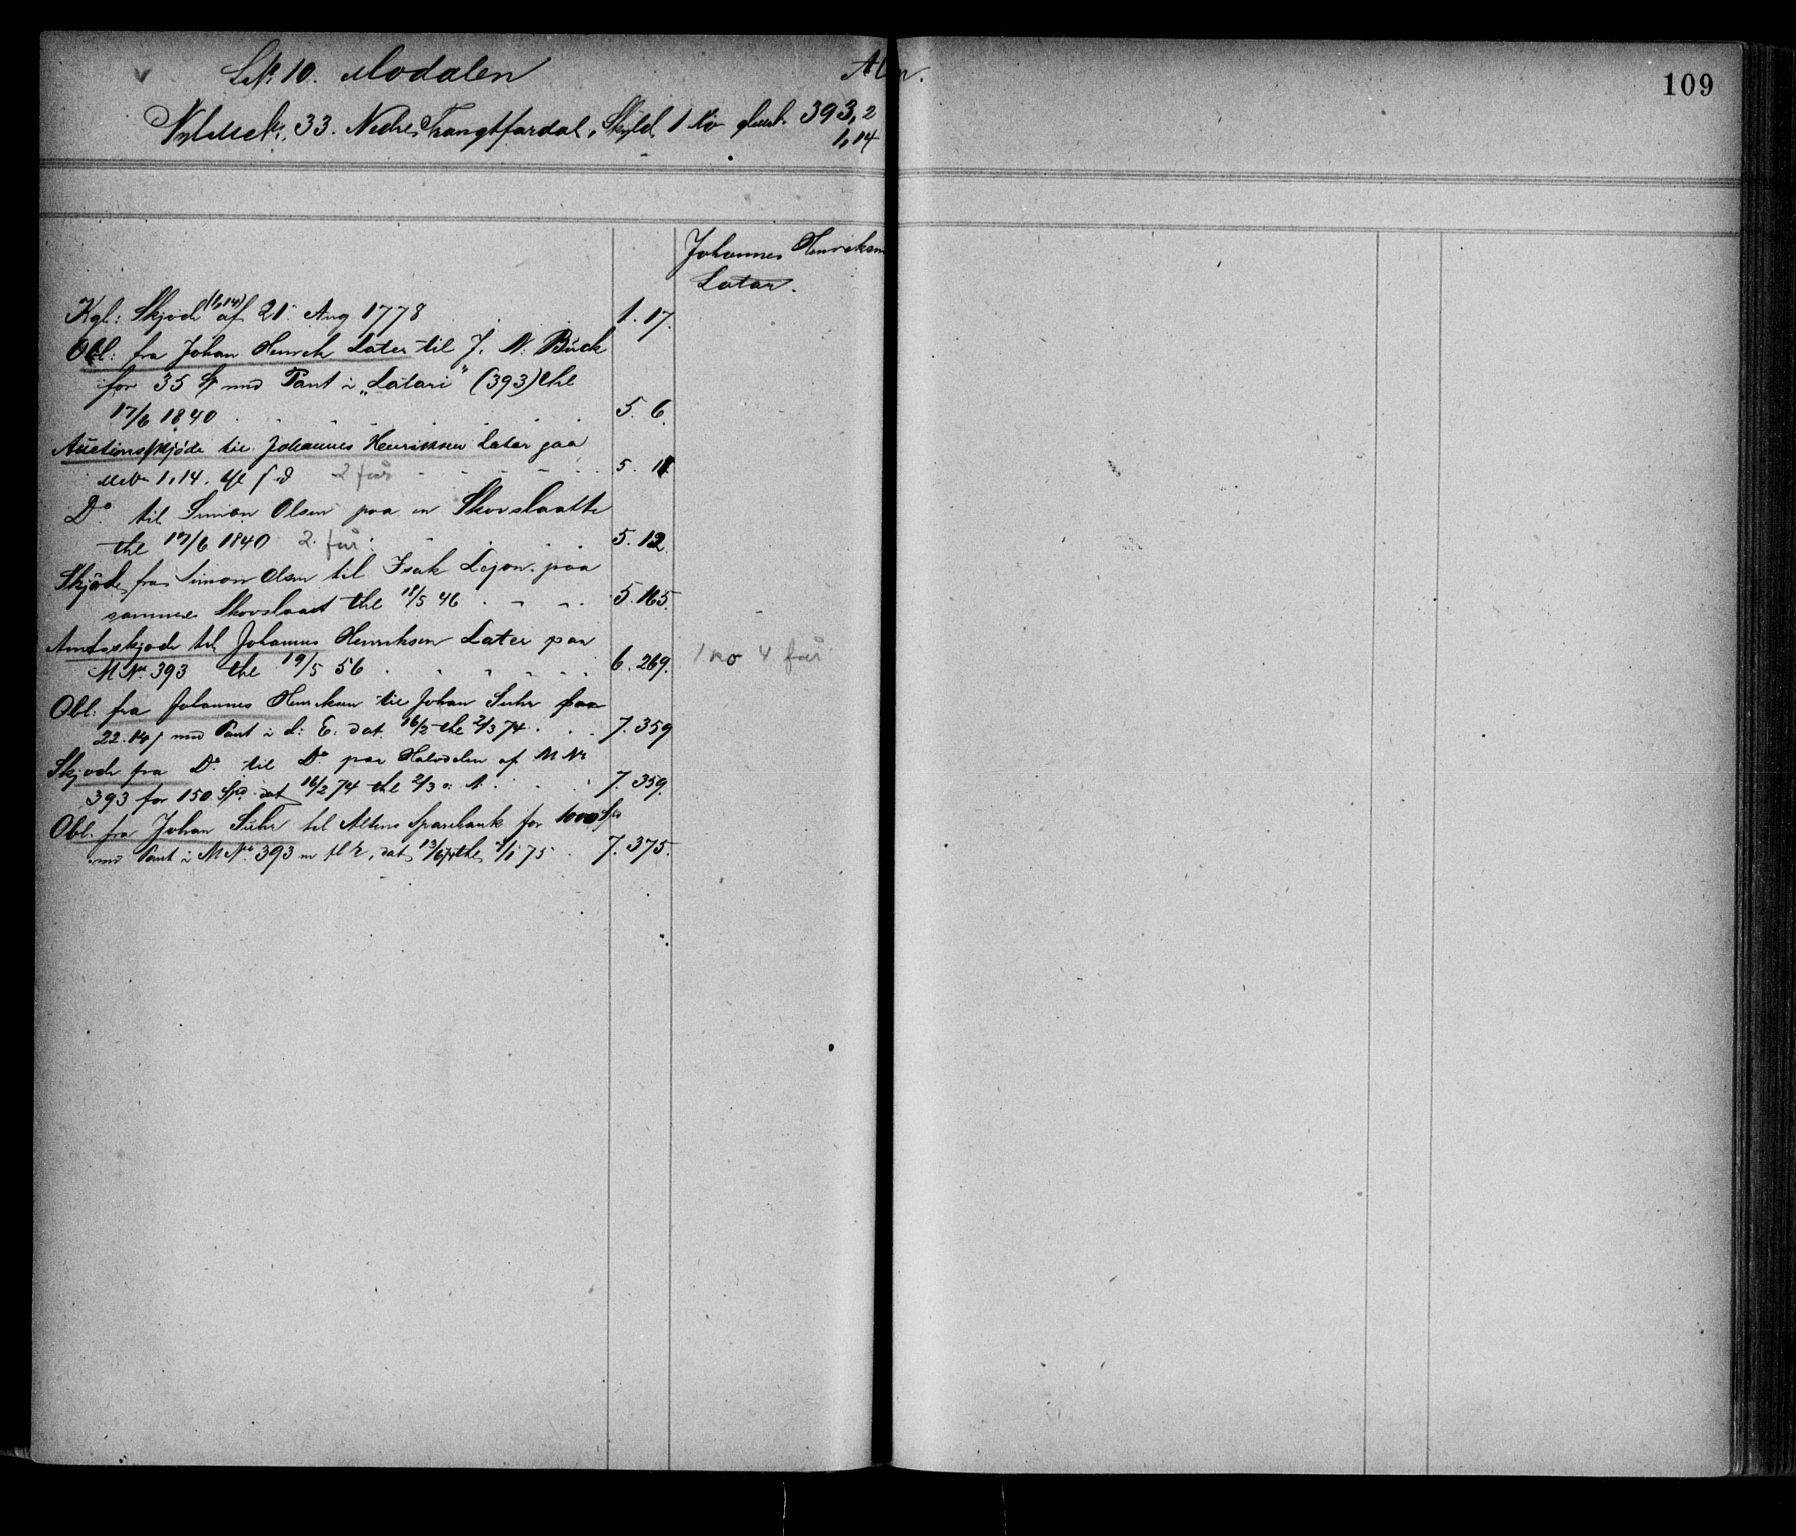 L.No 10. Modalen
Alm.
109
Nyl. MNo. 33. Nedre Trangtfardal, Skyld 1 Ko 393,2
1,14
Johannes Henriksen
Latar.
Kgl: Skjøde (1,14) af 21 Aug 1778 . . . 1.17.
Obl: fra Johan Henrik Later til J. N. Buck
for 35 Sp med Pant i „Latari" (393) thl
17/6 1840 . . . . . . . 5. 6.
Auctionsskjøde til Johannes Henriksen Later paa
MNo 1,14. thl s. d 2 får - - - - . . 5. 11.
Do. til Simon Olsen paa en Skovslaatte
thl 17/6 1840 2. får . . . . 5. 12.
Skjøde fra Simon Olsen til Isak paa
samme Skovslaat thl 18/5 46 . - - . 5. 165.
Amtsskjøde til Johannes Henriksen Later paa
M No. 393 thl 19/5 56 . . . . . . 6. 269. 1 ko 4 får
Obl: fra Johannes Henriksen til Johan Suhr paa
22.14 med Pant i d: E. dat 16/2 thl 2/3 74 . . . 7. 359
Skjøde fra Do. til Do paa Halvdelen af M No
393 for 150 Spd dat 16/2 74 thl 2/3 . . . 7. 359.
Obl. fra Johan Suhr til Altens Sparebank for 1000 Sp
med Pant i M No. 393 m fl E, dat 13/6 74 thl 75 . 7. 375.